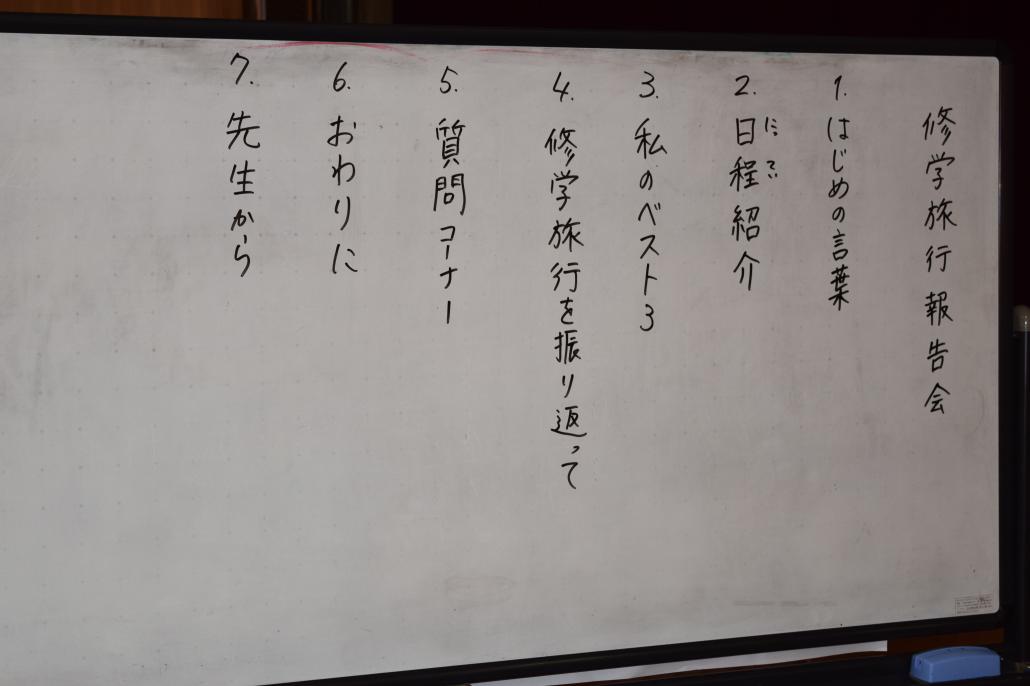 修学旅行報告会
1. はじめの言葉
2. 日程紹介
にってい
3. 私のベスト3
4. 修学旅行を振り返って
5. 質問コーナー
6. おわりに
7. 先生から